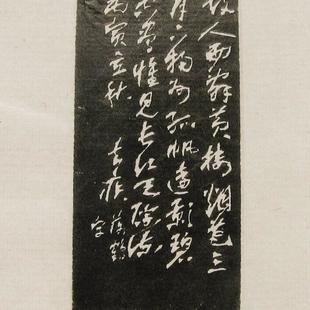 故人西辞黄鹤楼烟花三
月下扬州孤帆远影碧
空尽惟见长江天际流
丙寅立秋